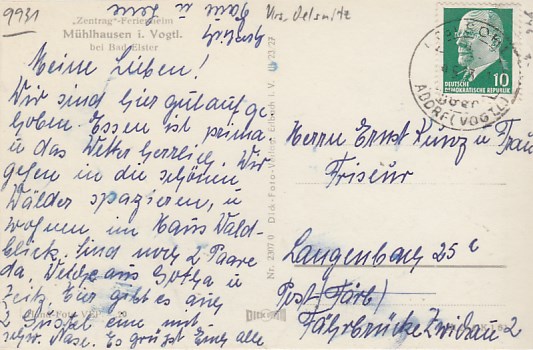 9931
"Zentrag"-Ferienheim
Mühlhausen i. Vogtl.
bei Bad Elster
Krs. Oelsnitz
Hans u. Lene
Meine Lieben!
Wir sind hier gut aufge
hoben. Essen ist prima
u das Wetter herrlich. Wir
gehen in die schönen
Wälder spazieren, u
wohnen im Haus Wald-
blick. Sind noch 2 Paare
da. Welche aus Gotha u
Zeitz. Hier gibt es auch
2 eine mit
schw. Nase. Es grüsst Euch alle
Nr. 2307 0 Dick-Foto-Verlag, Erlbach i. V.
DEUTSCHE
DEMOKRATISCHE REPUBLIK
10
ADORF (VOGTL)
Herrn Ernst Kunz u Frau
Friseur
Langenbach 25 c
Post (Färb)
Fährbrücke Zwickau 2